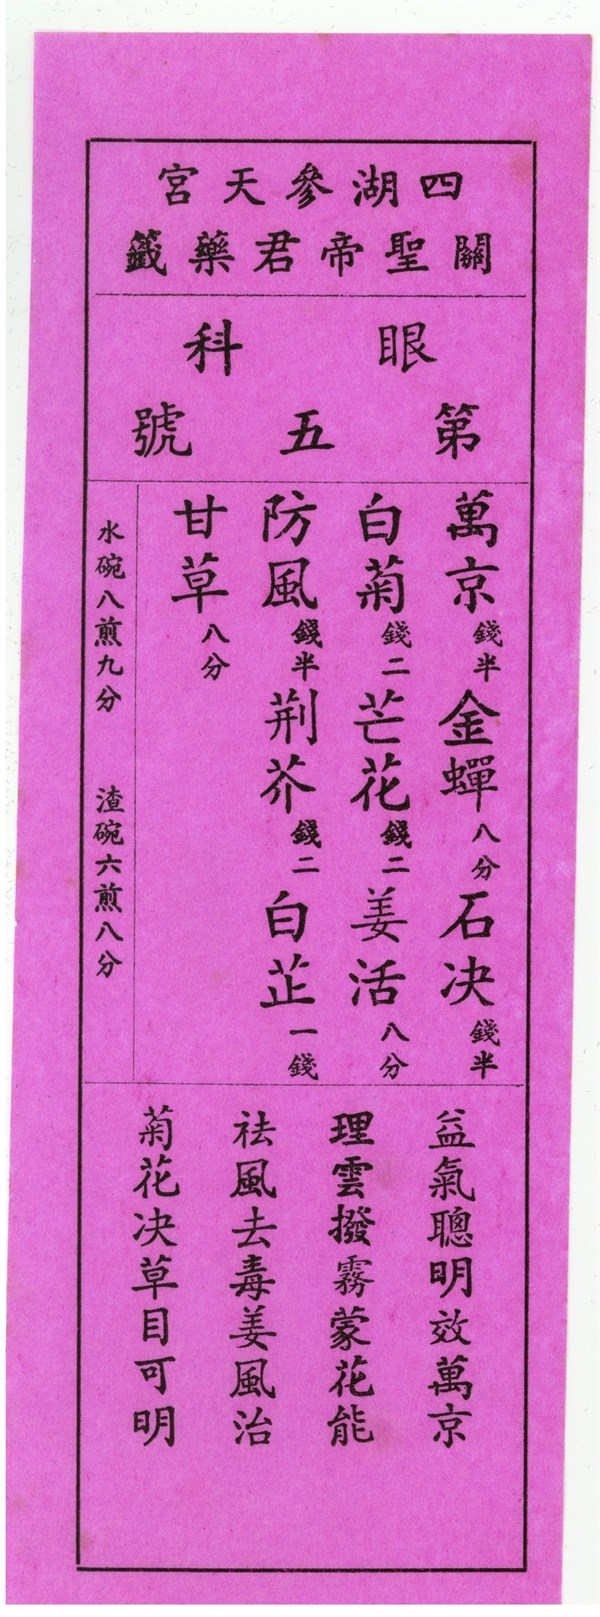 四湖參天宮
關聖帝君藥籤
眼科
第五號
萬京錢半 金蟬八分 石决錢半
白菊錢二 芒花錢二 姜活八分
防風錢半 荆芥錢二 白芷一錢
甘草八分
水碗八煎九分 渣碗六煎八分
益氣聰明效萬京
理雲撥霧蒙花能
祛風去毒姜風治
菊花决草目可明